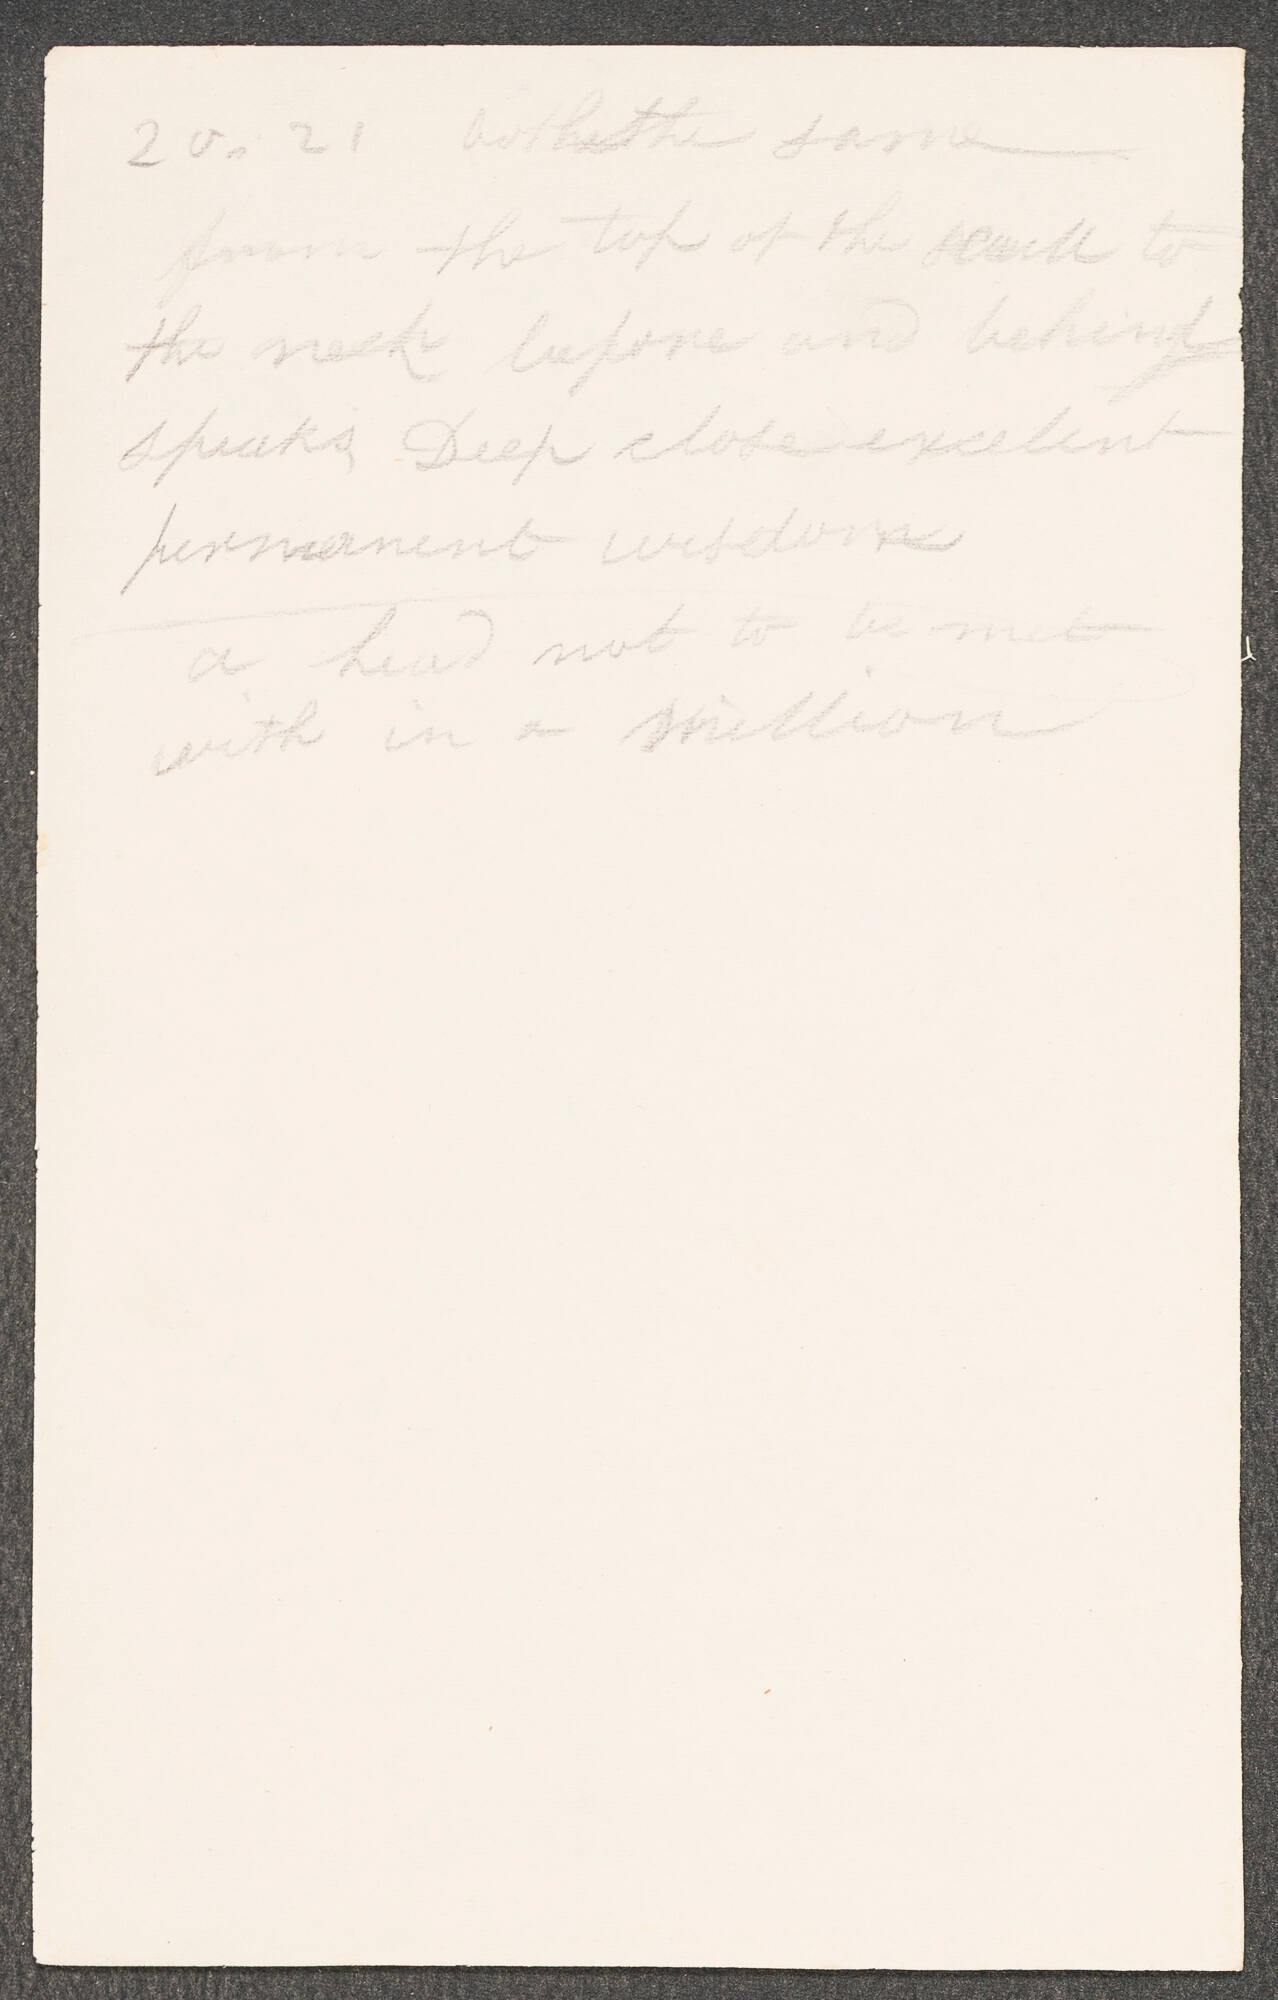 20. 21 both the same
from the top of the scull to
the neck before and behind
speaks Deep close excelent
permanent wisdom
a head not to be met
with in a Million